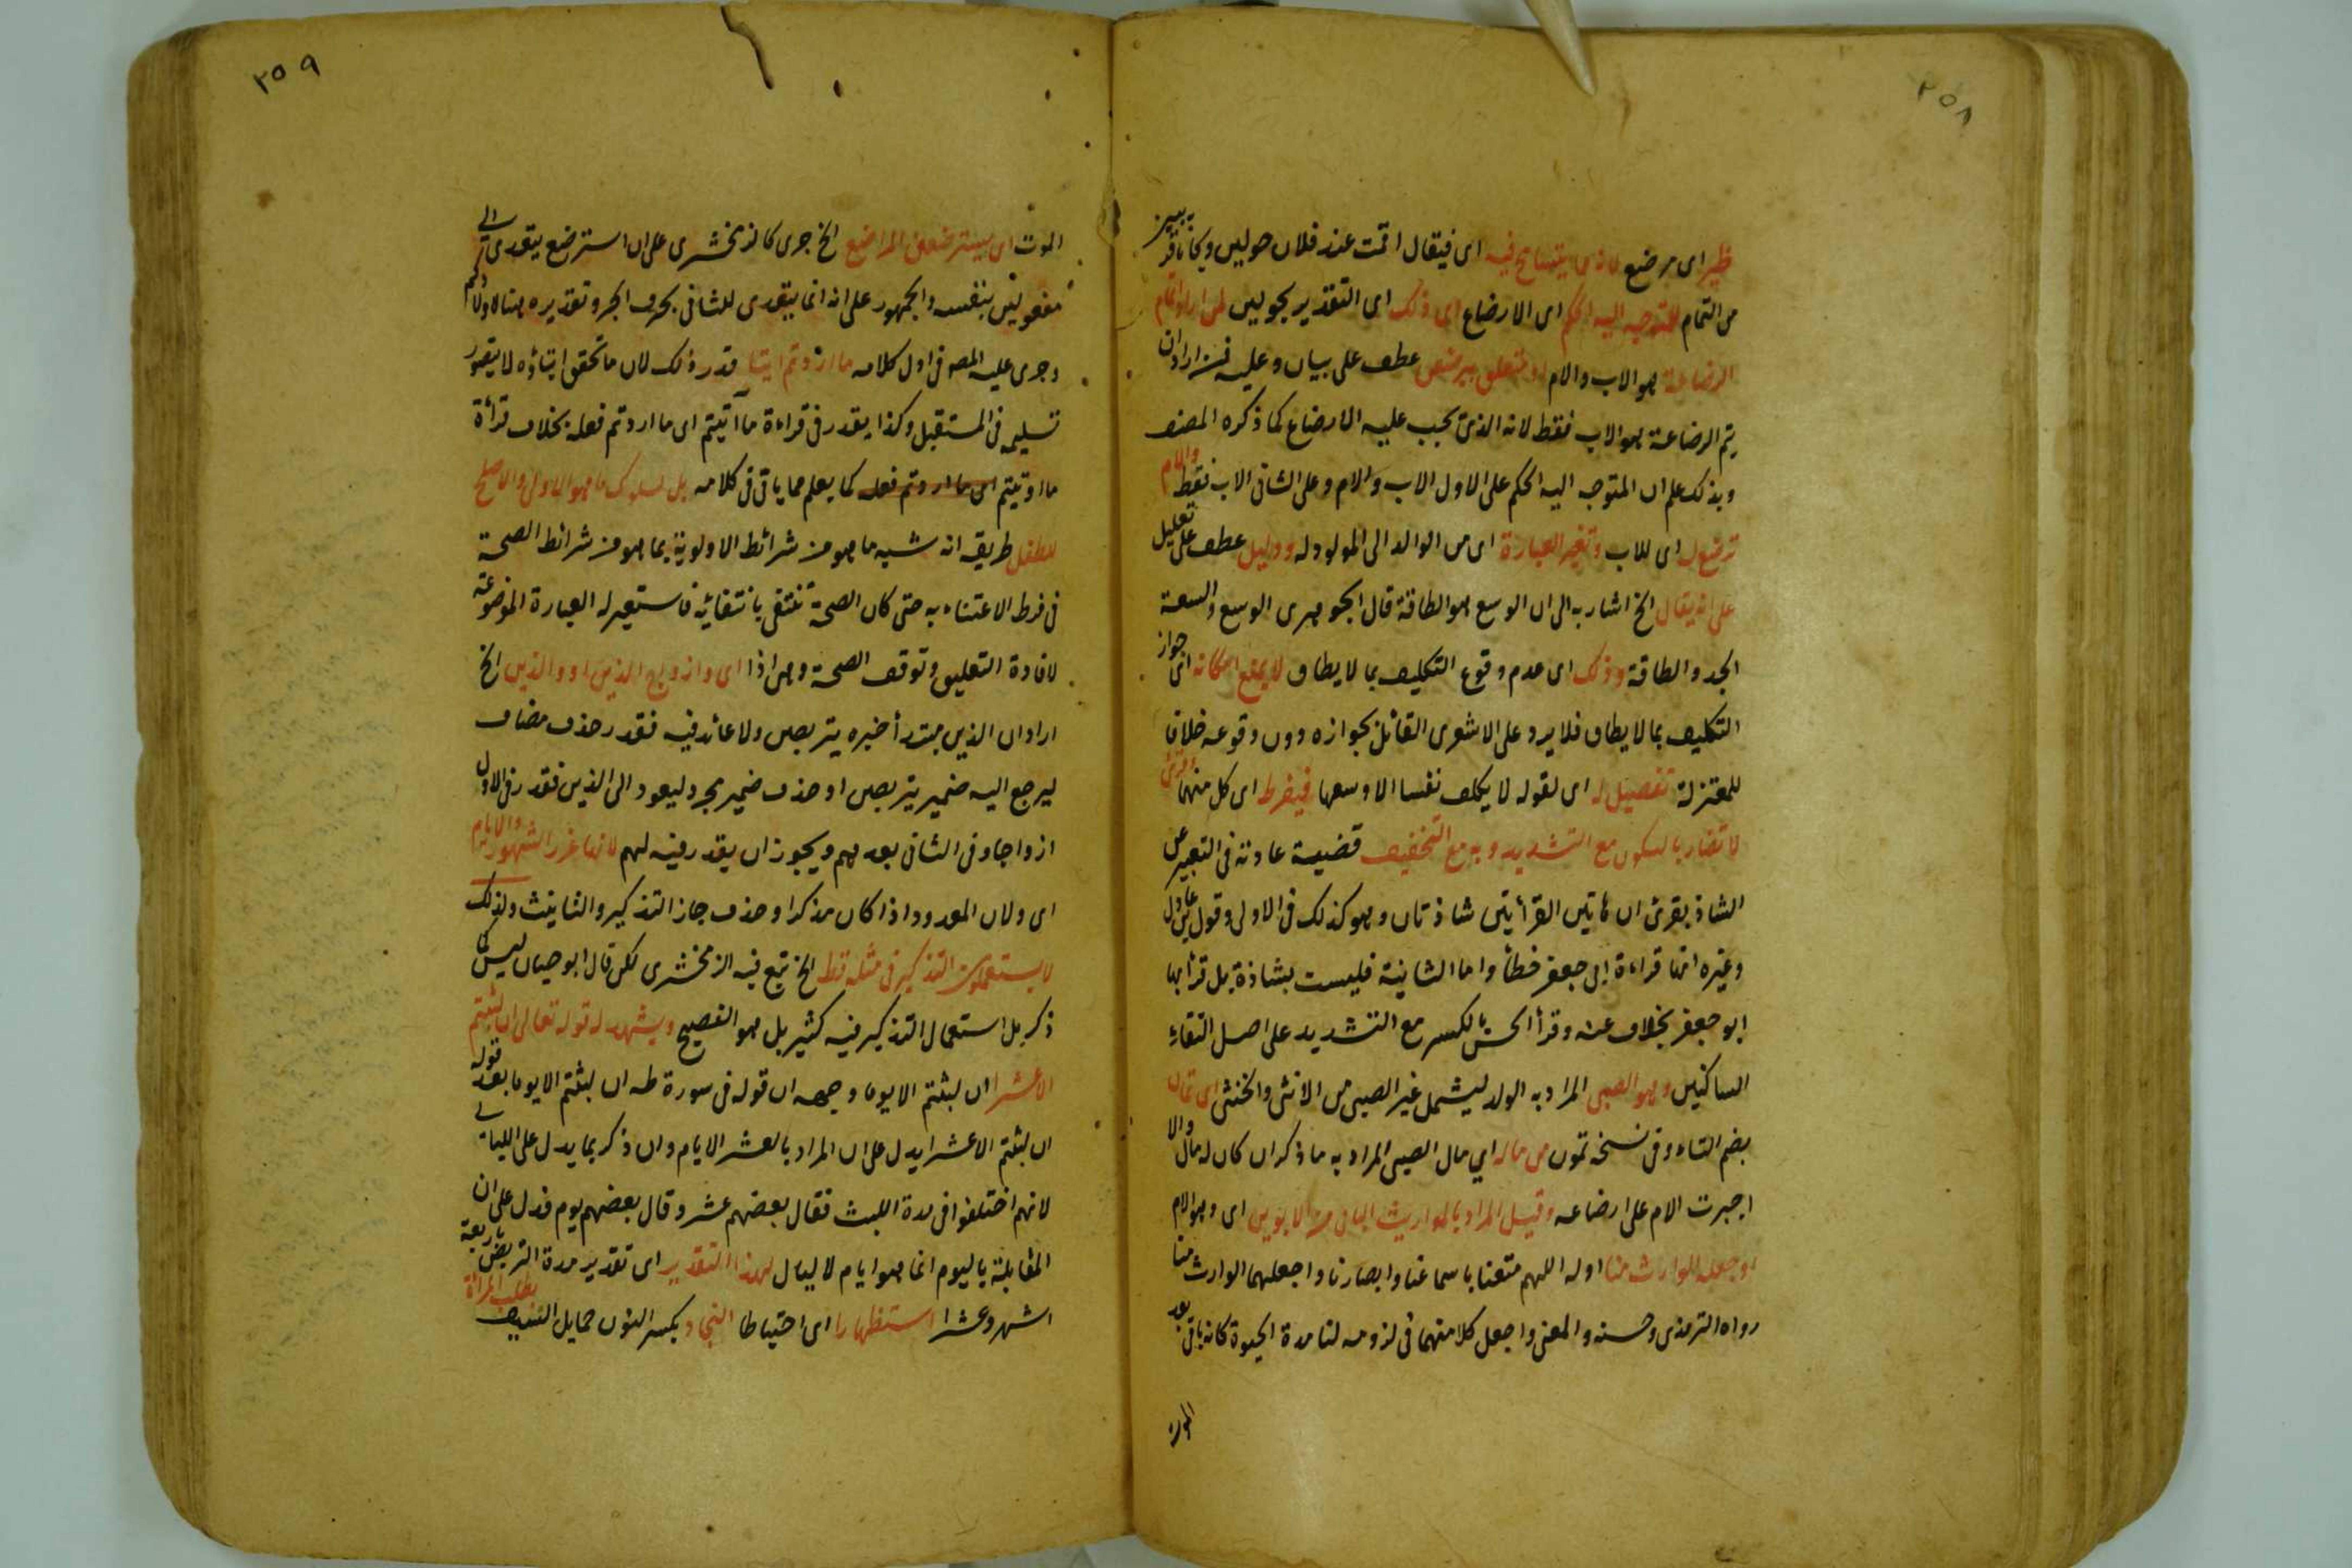 ٢٥٨
ظئر اى مرضع لانه مما يتسامح فيه اى فيقال اقمت عند فلان حولين ويكانا قريبين
من التمام للمتوجه اليه الحكم اى الارضاع اى ذلك اى التقدير بحولين لمن اراد اتمام
الرضاعة هو الاب والام او متعلق بيرضعن عطف على بيان وعليه فمن اراد ان
يتم الرضاعة هو الاب فقط لانه الذى يجب عليه الارضاع كما ذكره المصنف
وبذلك علم ان المتوجه اليه الحكم على الاول الاب والام وعلى الثانى الاب فقط والام
ترضع له اى للاب وتغيير العبارة اى من الوالد الى المولود له ودليل عطف على تعليل
على انه يقال الخ اشار به الى ان الوسع هو الطاقة قال الجوهرى الوسع والسعة
الجد والطاقة وذلك اى عدم وقوع التكليف بما لا يطاق لا يمنع امكانه اى جواز
التكليف بما لا يطاق فلا يرد على الاشعرى القائل بجوازه دون وقوعه خلافا
للمعتزلة تفصيل له اى لقوله لا يكلف نفسا الا وسعها فيفرط اى كل منهما وقرئ
لا تضار بالسكون مع التشديد وبه مع التخفيف قضية عادته فى التعبير عن
الشاذ بقرئ ان هاتين القرأتين شاذتان وهو كذلك فى الاولى وقول ابن عادل
وغيره انها قراءة ابى جعفر خطأ واما الثانية فليست بشاذة بل قرأ بها
ابو جعفر بخلاف عنه وقرأ الحسن بالكسر مع التشديد على اصل التقاء
الساكنين وهو الصبى المراد به الولد ليشمل غير الصبى من الانثى والخنثى اى تمان
بضم التاء وفى نسخة تمون من ماله اي مال الصبى المراد به ما ذكر ان كان له مال والا
اجبرت الام على ارضاعه وقيل المراد بالوارث الباقى من الابوين اى وهو الام
واجعله الوارث منا اوله اللهم متعنا باسماعنا وابصارنا واجعلهما الوارث منا
رواه الترمذى وحسنه والمعنى واجعل كلا منهما فى لزومه لنا مدة الحيوة كانه باقى بعد
الموت
٢٥٩
الموت اى يسترضعن المراضع الخ جرى كالزمخشرى على ان استرضع يتعدى الى
مفعولين بنفسه والجمهور على انه انما يتعدى للثانى بحرف الجر وتقديره هنا لاولادكم
وجرى عليه المصه فى اول كلامه ما اردتم ايتا قدر ذلك لان ما تحقق ايتاؤه لا يتصور
تسليمه فى المستقبل وكذا يقدر فى قراءة ما آتيتم اى ما اردتم فعله بخلاف قرأة
ما اوتيتم اى ما اردتم فعله كما يعلم مما ياتى فى كلامه بل لسلوك ما هو الاولى والاصلح
للطفل طريقه انه شبه ما هو من شرائط الاولوية بما هو من شرائط الصحة
فى فرط الاعتناء به حتى كان الصحة تنتفى بانتفائه فاستعير له العبارة الموضوعة
لافادة التعليق وتوقف الصحة وهى اذا اى وازواج الذين او والذين الخ
اراد ان الذين مبتدأ خبره يتربصن ولا عائد فيه فقدر حذف مضاف
ليرجع اليه ضمير يتربصن او حذف ضمير يجر وليعود الى الذين فقدر فى الاول
ازواجا وفى الثانى بعدهم ويجوز ان يقدر فيه لهم لانها غرر الشهور والايام
اى ولان المعدود اذا كان مذكرا وحذف جاز التذكير والتانيث ولذلك
لا يستعملون التذكير فى مثله قط الخ تبع فيه الزمخشرى لكن قال ابو حيان ليس كما
ذكر بل استعمال التذكير فيه كثير بل هو الفصيح ويشهد له قوله تعالى ان لبثتم
الا عشرا ان لبثتم الا يوما وجهه ان قوله فى سورة طه ان لبثتم الا يوما بعد قوله
ان لبثتم الا عشرا يدل على ان المراد بالعشر الايام وان ذكر بما يدل على الليالى
لانهم اختلفوا فى مدة اللبث فقال بعضهم عشر وقال بعضهم يوم فدل على ان
المقابلة باليوم انما هو ايام لا ليال لهذا التقدير اى تقدير مدة التربص باربعة
اشهر وعشرا استظهارا اى احتياطا النجاد بكسر النون حمايل السيف بطلب المرأة